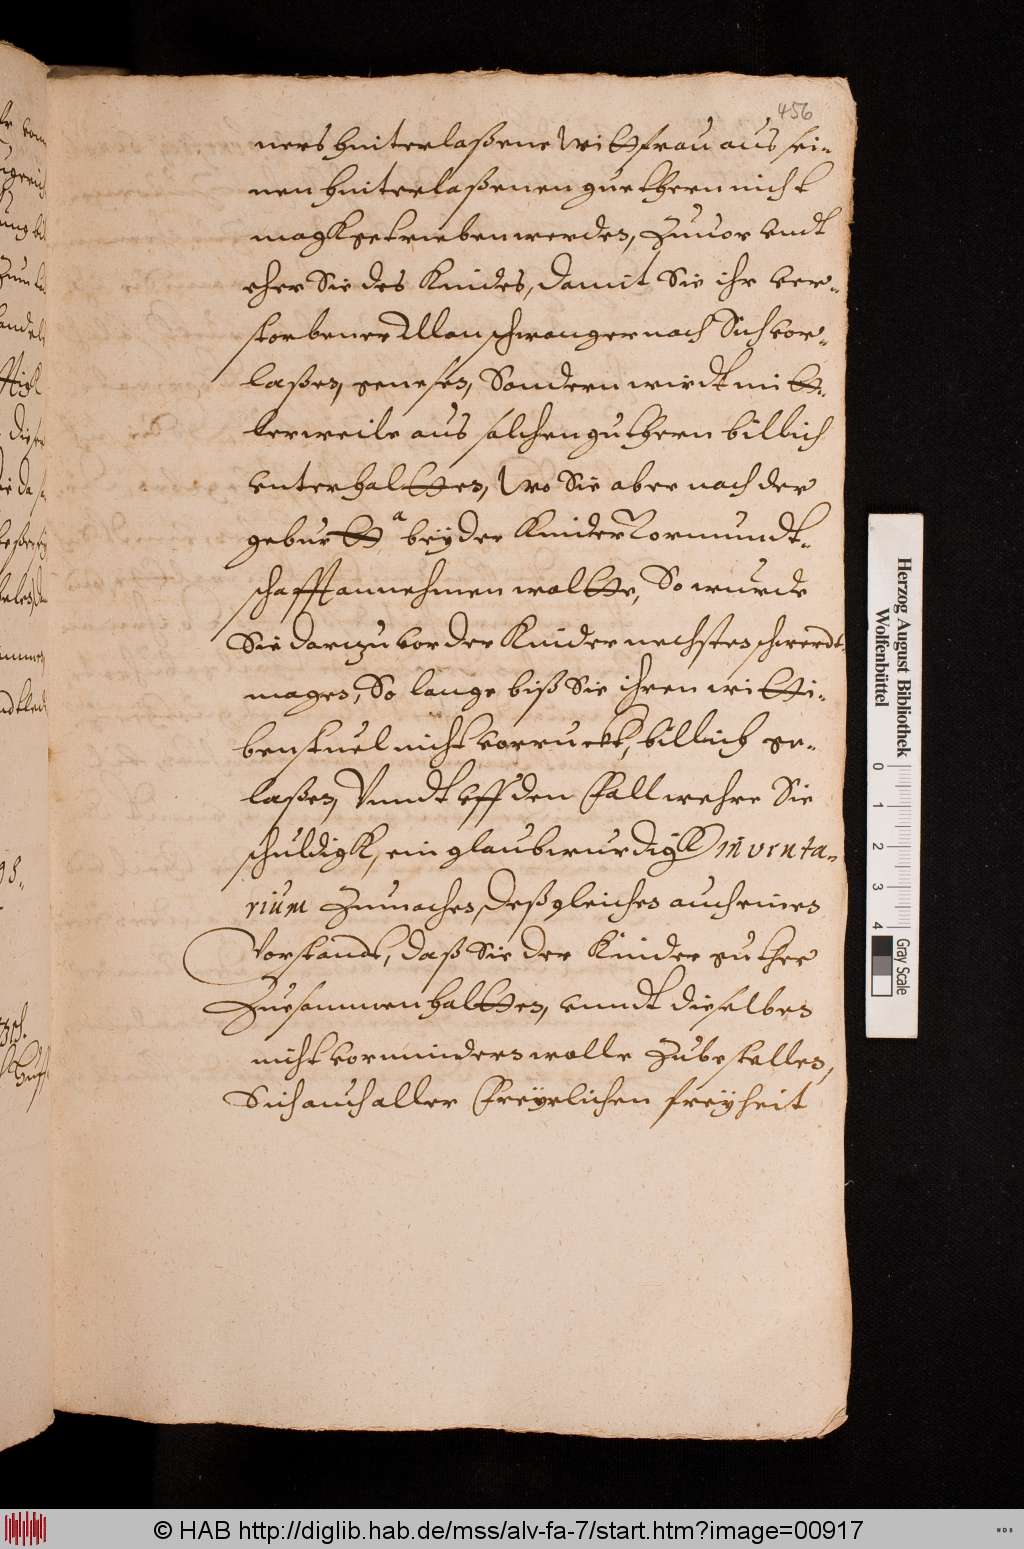 456
ners hinterlaßene Wittfrau aus sei-
nen hinterlaßenen guethern nicht
magk getrieben werden, Zuuor undt
eher Sie des Kindes, damit Sie ihr ver-
storbener Man schwanger nach Sich vor-
laßen, genesen, Sondern wirdt mitt-
lerweile aus solchen guthern billich
unterhaltten, Wo Sie aber nach der
geburtt a beyder Kinder Vormundt-
schafft annehmen woltte, So wurde
Sie darzu vor der Kinder nechsten schwerdt-
magen, So lange biß Sie ihren witti-
benstuel nicht vorruckt, billich ge-
laßen, Vnndt vff den Fall wehre Sie
schuldigk, ein glaubwurdigk inventa-
rium Zumachen, Deßgleichen auch eines
Vorstandt, daß Sie der Kinder guther
Zuesammen haltten, vnndt dieselben
nicht vormindern wolle Zubestellen,
Sich auch aller Freyelichen freyheit
Herzog August Bibliothek
Wolfenbüttel
0 1 2 3 4
Gray Scale
© HAB http://diglib.hab.de/mss/alv-fa-7/start.htm?image=00917